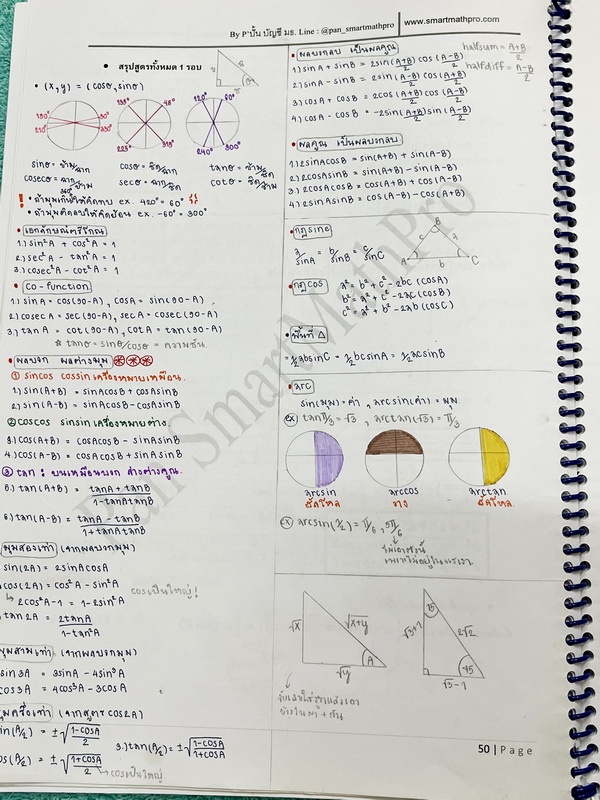 By P'ปั้น บัญชี มธ. Line : @pan_smartmathpro | www.smartmathpro.com
• สรุปสูตรทั้งหมด 1 รอบ
• (x,y) = (cosθ, sinθ)
150° 30°
210° 330°
135° 45°
225° 315°
120° 60°
240° 300°
sinθ = ข้าม/ฉาก cosθ = ชิด/ฉาก tanθ = ข้าม/ชิด
cosecθ = ฉาก/ข้าม secθ = ฉาก/ชิด cotθ = ชิด/ข้าม
ex. 420° = 60°
ex. -60° = 300°
• เอกลักษณ์ตรีโกณ
1.) sin²A + cos²A = 1
2.) sec²A - tan²A = 1
3.) cosec²A - cot²A = 1
• co-function
1.) sinA = cos(90-A), cosA = sin(90-A)
2.) cosecA = sec(90-A), secA = cosec(90-A)
3.) tanA = cot(90-A), cotA = tan(90-A)
☆ tanθ = sinθ/cosθ = ความชัน
• ผลบวก ผลต่างมุม
① sincos cossin เครื่องหมายเหมือน.
1.) sin(A+B) = sinAcosB + cosAsinB
2.) sin(A-B) = sinAcosB - cosAsinB
② coscos sinsin เครื่องหมายต่าง.
3.) cos(A+B) = cosAcosB - sinAsinB
4.) cos(A-B) = cosAcosB + sinAsinB
③ tan : บนเหมือนบวก ล่างต่างคูณ.
5.) tan(A+B) = (tanA + tanB)/(1 - tanAtanB)
6.) tan(A-B) = (tanA - tanB)/(1 + tanAtanB)
มุมสองเท่า (จากผลบวกมุม)
sin(2A) = 2sinAcosA
cos(2A) = cos²A - sin²A
↳ 2cos²A-1 = 1-2sin²A
cosเป็นใหญ่!
tan2A = 2tanA/(1-tan²A)
มุมสามเท่า (จากผลบวกมุม)
sin3A = 3sinA - 4sin³A
cos3A = 4cos³A - 3cosA
มุมครึ่งเท่า (จากสูตร cos2A)
in(A/2) = ±√((1-cosA)/2) 3.) tan(A/2) = ±√((1-cosA)/(1+cosA))
os(A/2) = ±√((1+cosA)/2) → cosเป็นใหญ่
• ผลบวกลบ เป็นผลคูณ
halfsum = (A+B)/2
halfdiff = (A-B)/2
1.) sinA + sinB = 2sin((A+B)/2)cos((A-B)/2)
2.) sinA - sinB = 2sin((A-B)/2)cos((A+B)/2)
3.) cosA + cosB = 2cos((A+B)/2)cos((A-B)/2)
4.) cosA - cosB = -2sin((A+B)/2)sin((A-B)/2)
• ผลคูณ เป็นผลบวกลบ
1.) 2sinAcosB = sin(A+B) + sin(A-B)
2.) 2cosAsinB = sin(A+B) - sin(A-B)
3.) 2cosAcosB = cos(A+B) + cos(A-B)
4.) 2sinAsinB = cos(A-B) - cos(A+B)
• กฎsine
a/sinA = b/sinB = c/sinC
B
c a
A b C
• กฎcos
a² = b² + c² - 2bc(cosA)
b² = a² + c² - 2ac(cosB)
c² = a² + b² - 2ab(cosC)
• พื้นที่ Δ
= ½absinC = ½bcsinA = ½acsinB
• arc
sin(มุม) = ค่า , arcsin(ค่า) = มุม
ex tanπ/3 = √3 , arctan(√3) = π/3
arcsin arccos arctan
ex arcsin(½) = π/6, 5π/6
√x √x+y √y A
√3+1 2√2 √3-1 15 75
50 | Page
Pan SmartMathPro